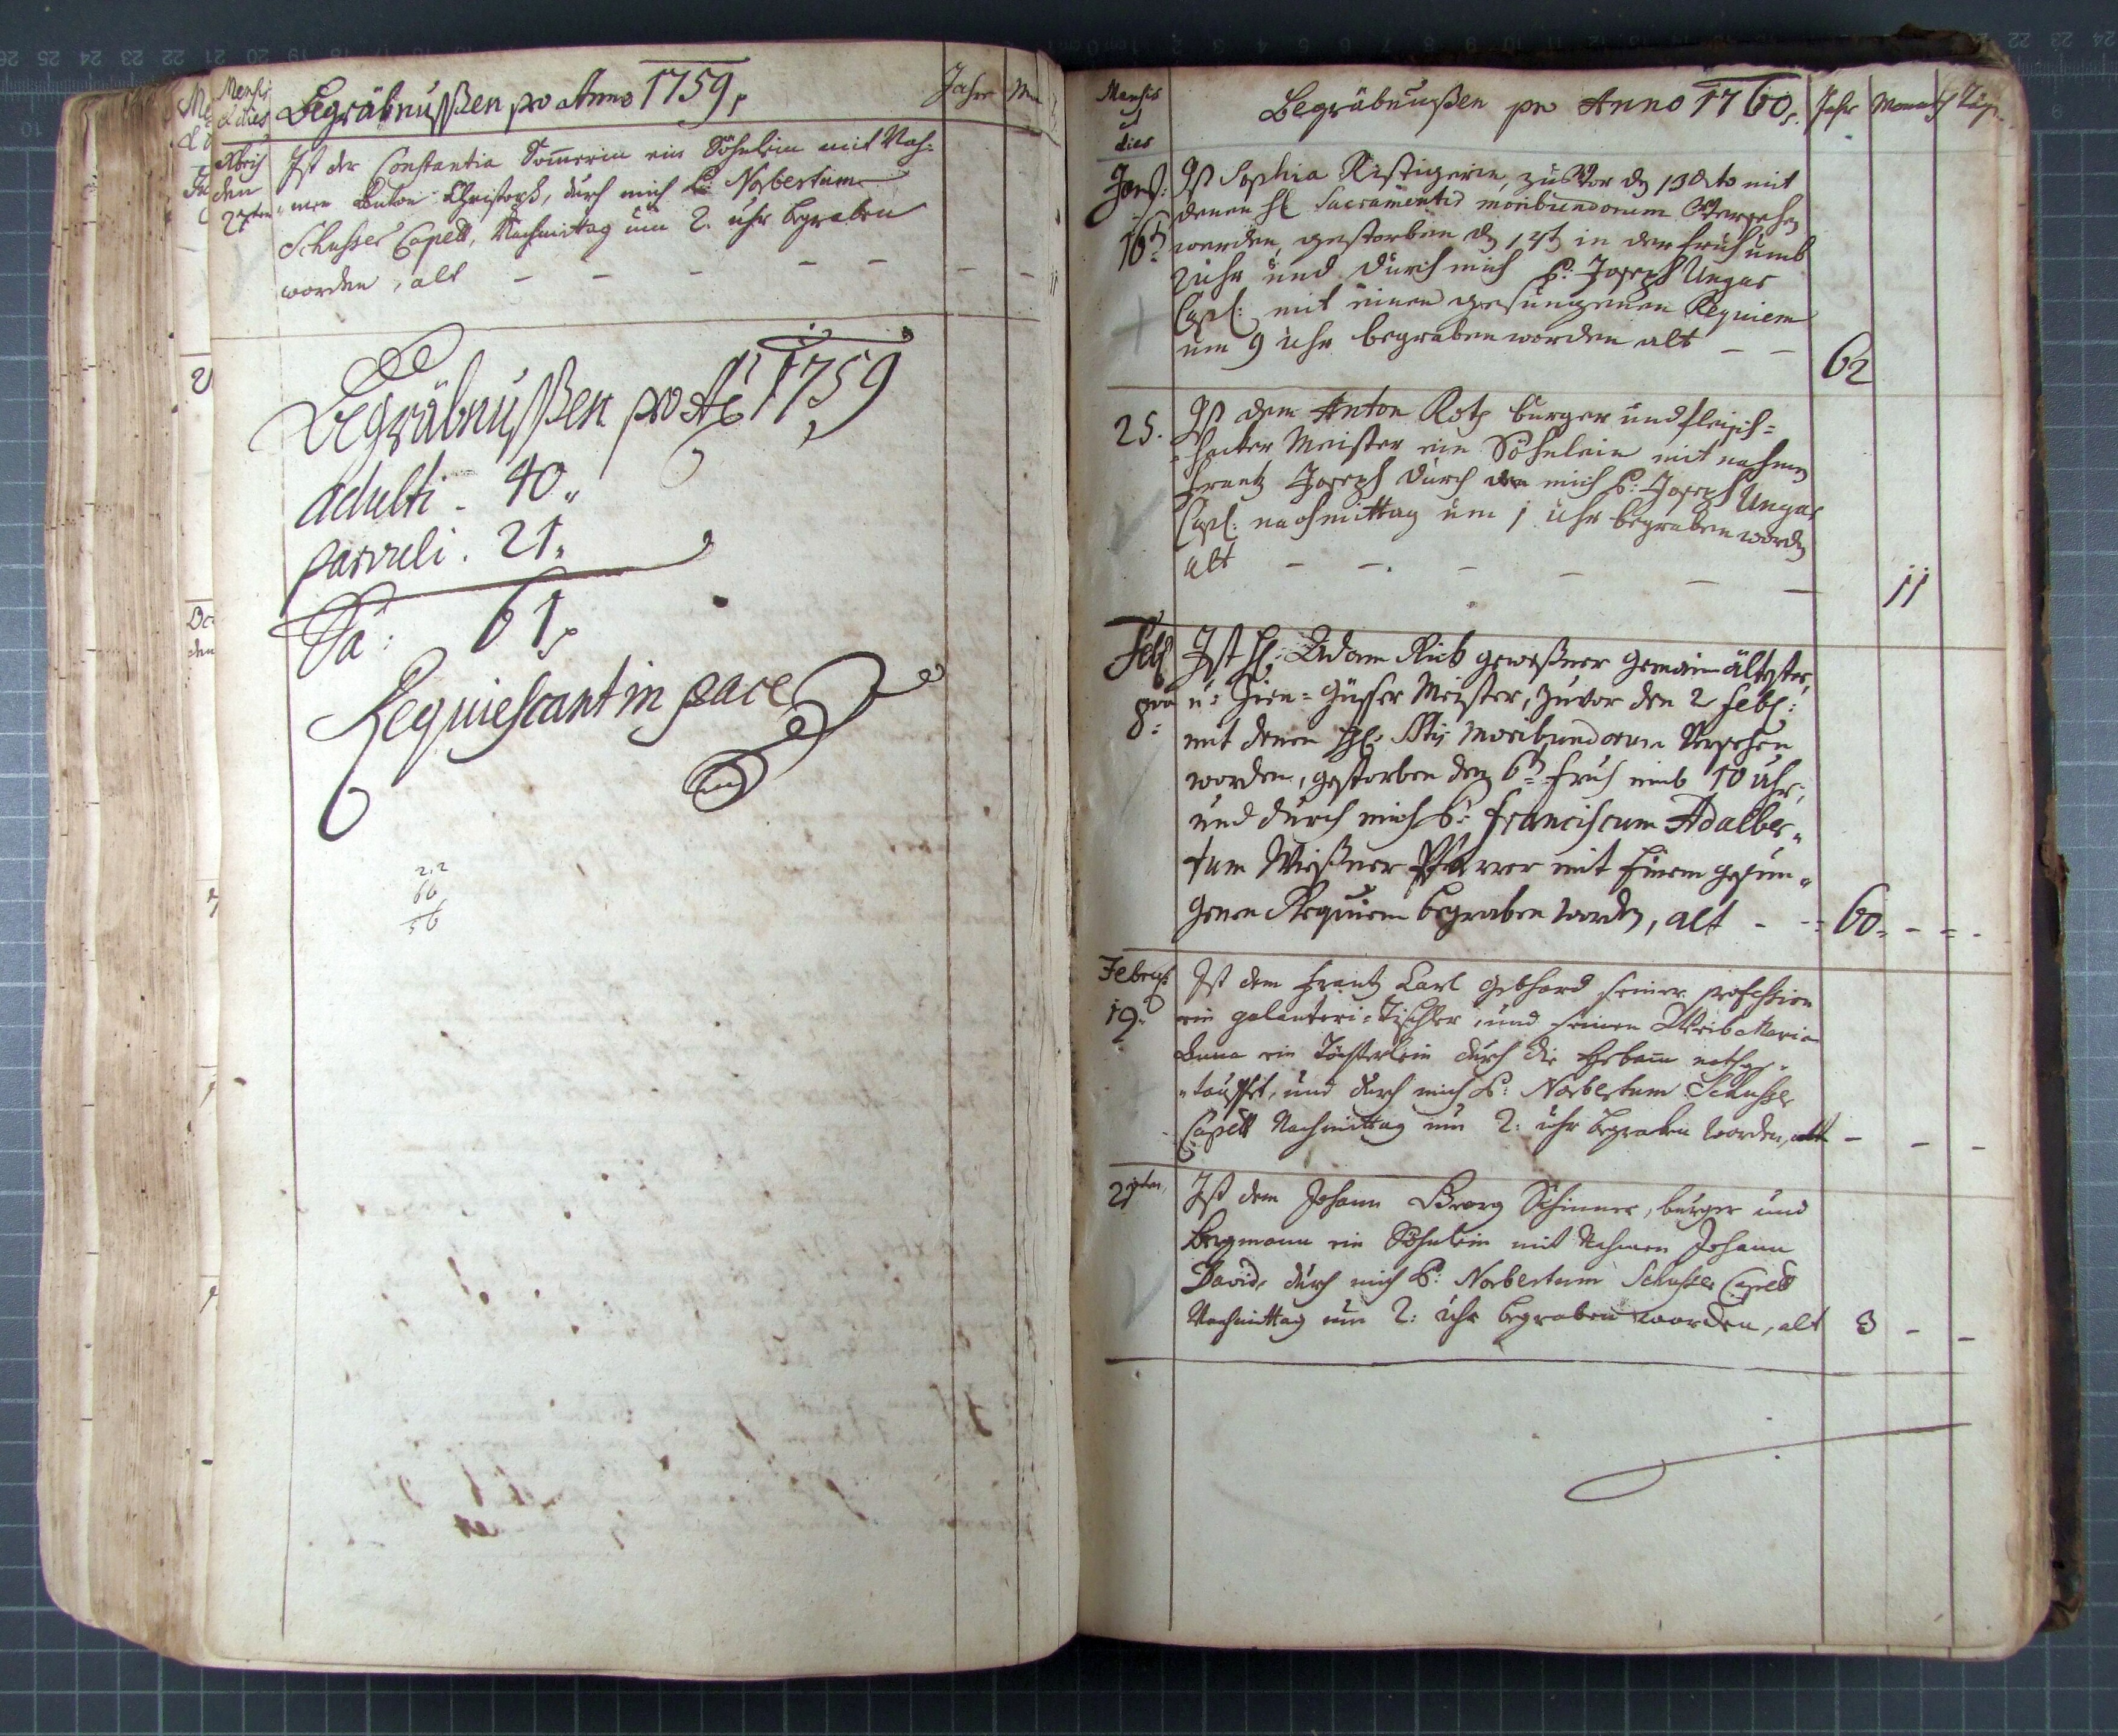 Mensis
& dies
Begräbnußen pro Anno 1759.
Jahr
Xbris
den
27ten
Ist der Constantia Somerin ein Söhnlein mit Nah=
=men Anton Christoph, durch mich P: Norbertum
Schusser Capell, Nachmittag um 2. uhr begraben
worden, alt – – – – – – –
Begräbnußen pro Ao 1759
adulti – 40.
parvuli. 21.
Sa: 61.
Requiescant in pace
Mensis
dies
Begräbnußen pro Anno 1760.
Jahr
Monath
Täg
16t
Ist Sophia Ristigerin, zuvor den 13 dito mit
denen hl Sacramentis moribundorum Versehen
worden, gestorben den 14t in der fruh umb
2 uhr und durch mich P: Joseph Ungar
Capl: mit einen gesungenen Requiem
um 9 uhr begraben worden alt – –
62
25.
Ist dem Anton Rotz burger und fleisch=
=hacker Meister ein Söhnlein mit nahmen
Frantz Joseph durch mich P: Joseph Ungar
Capl: nachmittag um 1 uhr begraben worden
alt – – – – – –
11
Feb
8.
Ist H: Adam Rieb geweßner Gemein ältester,
u: Zien=Güsser Meister, zuvor den 2 feb:
mit denen hh: Stis moribundorum Versehen
worden, gestorben den 6t fruh umb 10 uhr,
und durch mich P: Franciscum Adalber=
tum Wißner Pfarrer mit Einem gesun=
genen Requiem begraben worden, alt – –
60. – = –
Februar
19.
Ist dem Frantz Carl Gebhard seiner profession
ein galanteri=Tischler, und seinen Weib Maria
Anna ein Töchterlein durch die Hebam nothge=
=taufft, und durch mich P: Norbertum Schusser
Capell Nachmittag um 2: uhr begraben worden, alt – – –
Ist dem Johann Georg Schirmer, burger und
Bergmann ein Söhnlein mit Nahmen Johann
David, durch mich P: Norbertum Schusser Capell
Nachmittag um 2: uhr begraben worden, alt 3 – –